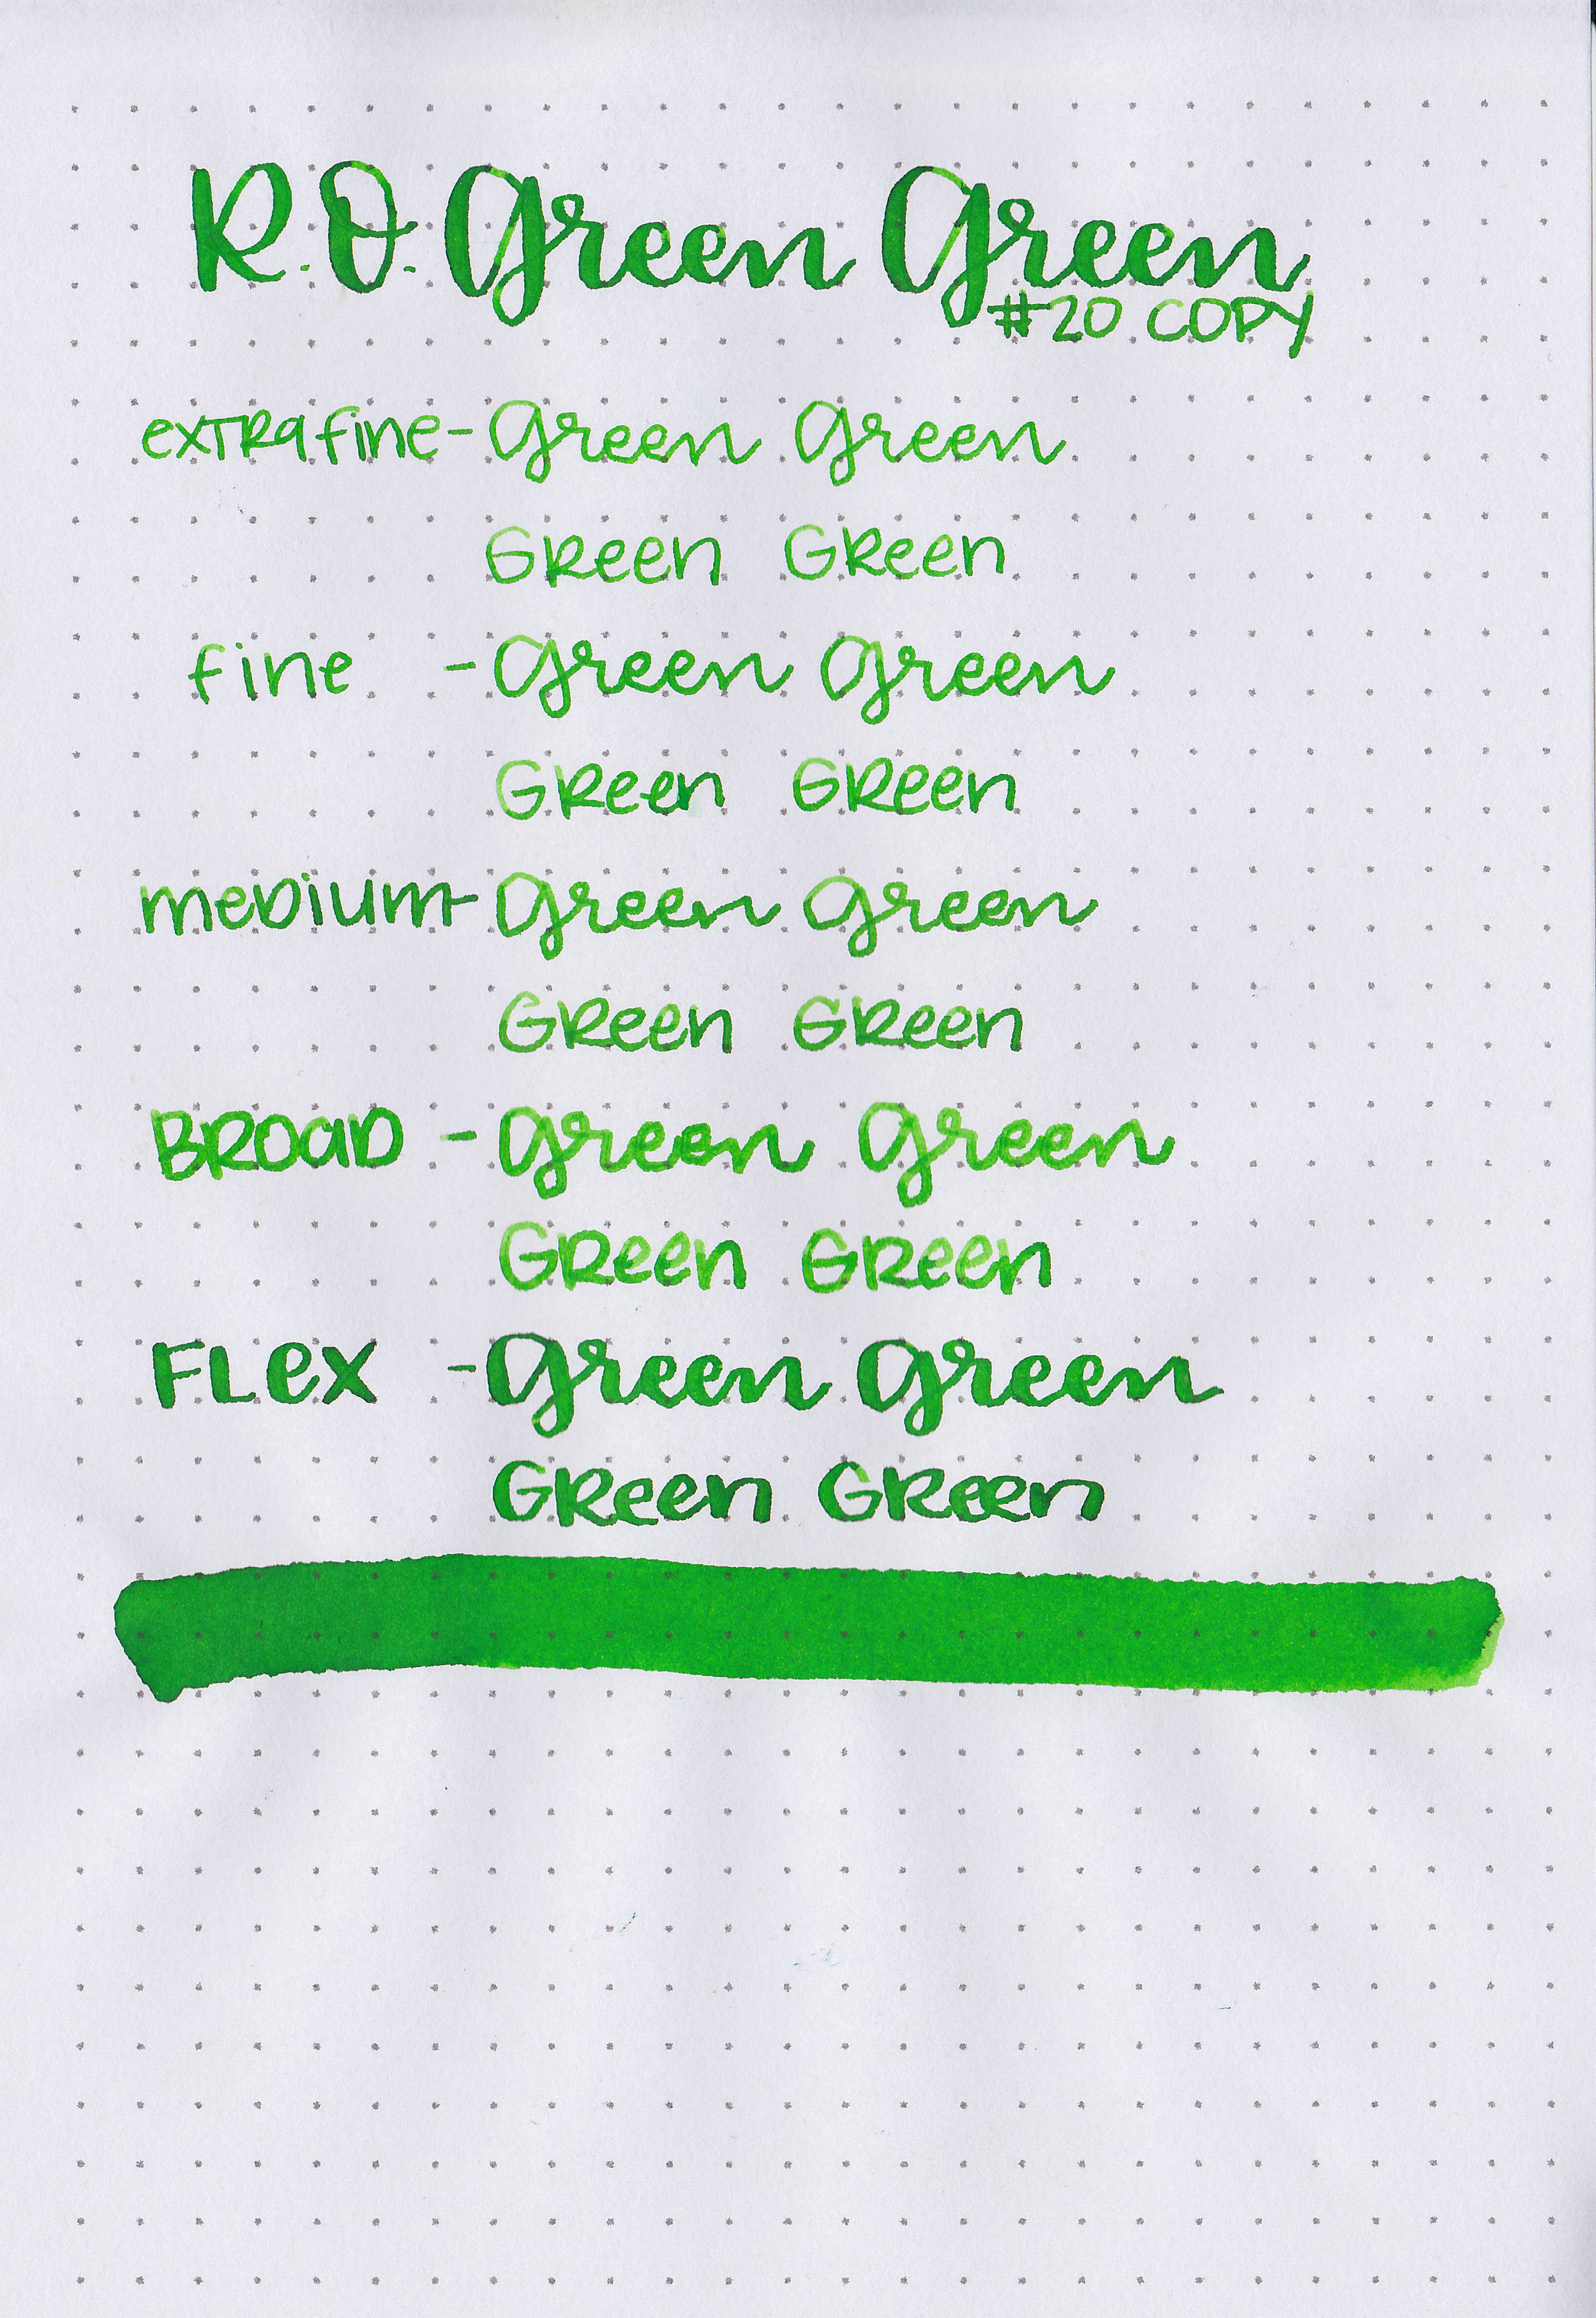 R.O. Green Green
#20 COPY
extra fine - Green Green
Green Green
fine - Green Green
Green Green
medium - Green Green
Green Green
BROAD - Green Green
Green Green
FLex - Green Green
Green Green